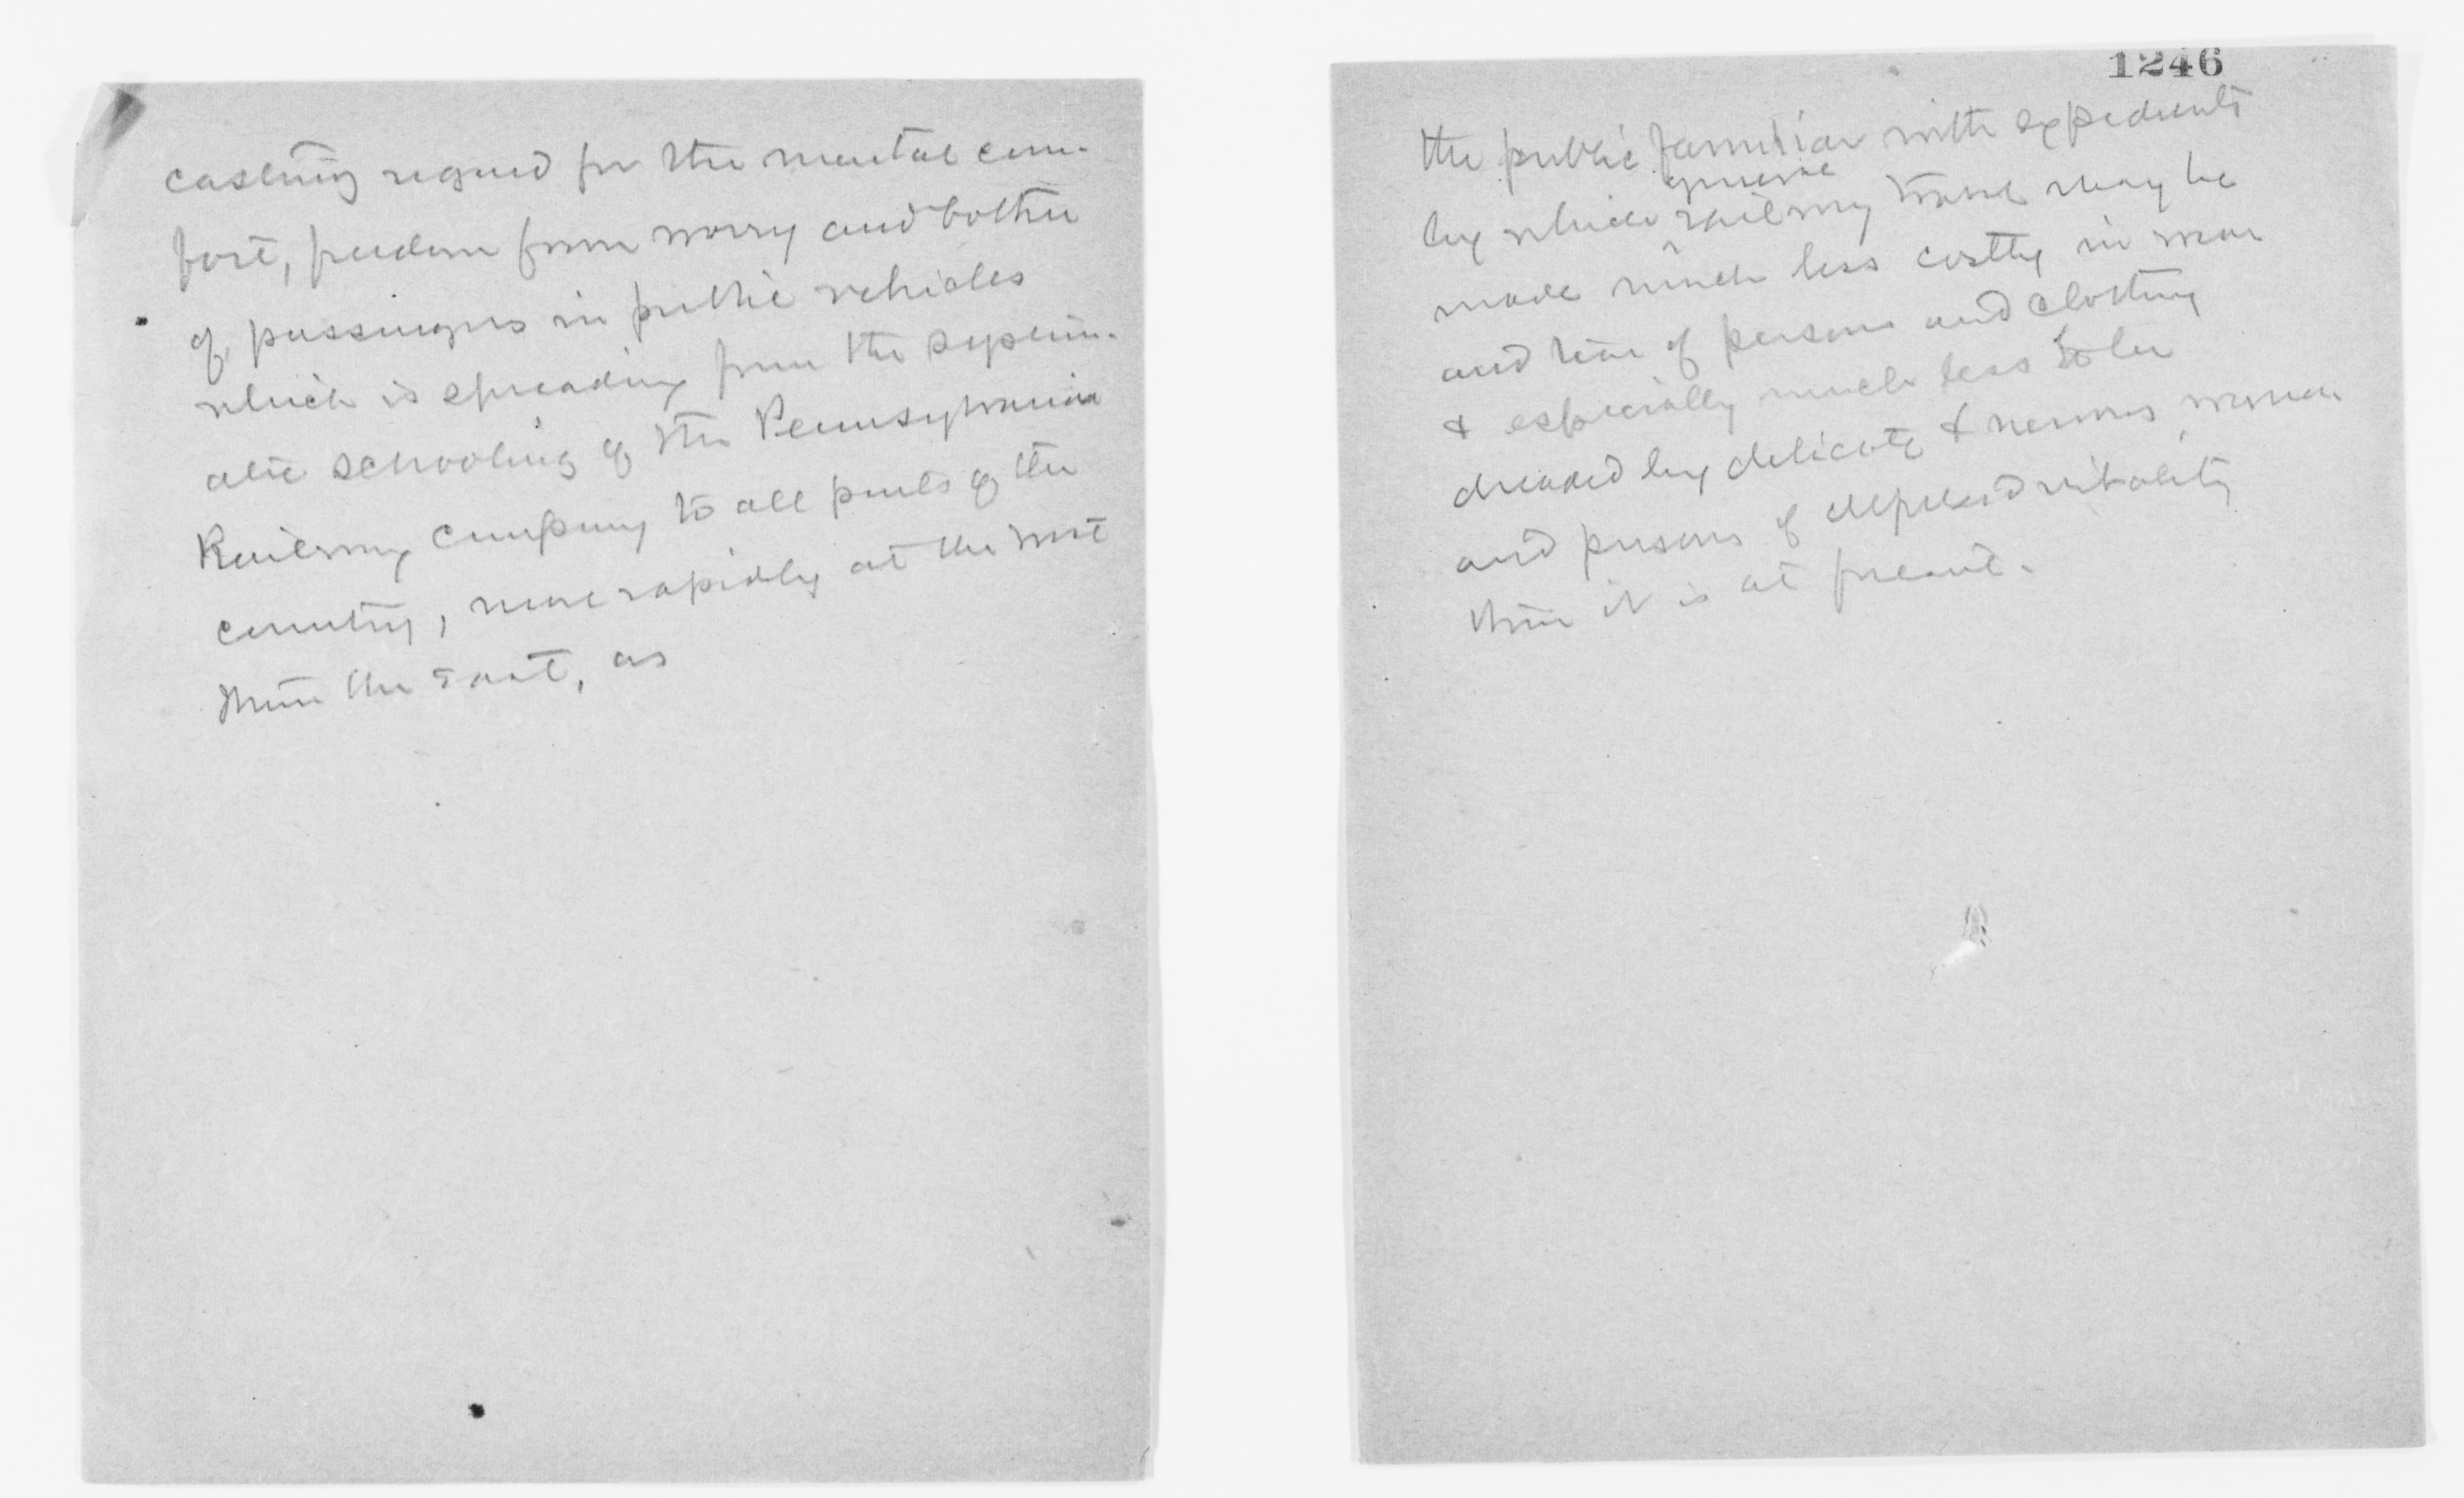 casting regard for the mental com-
fort, freedom from worry and bother
of passengers in public vehicles
which is spreading from the system-
atic schooling of the Pennsylvania
Railway Company to all parts of the
country, more rapidly at the West
than the East, as
1246
the public familiar with expedients
general
by which railway travel may be
made much less costly in wear
and tear of persons and clothing
& especially much less to be
dreaded by delicate & nervous women
and persons of depressed vitality
than it is at present.